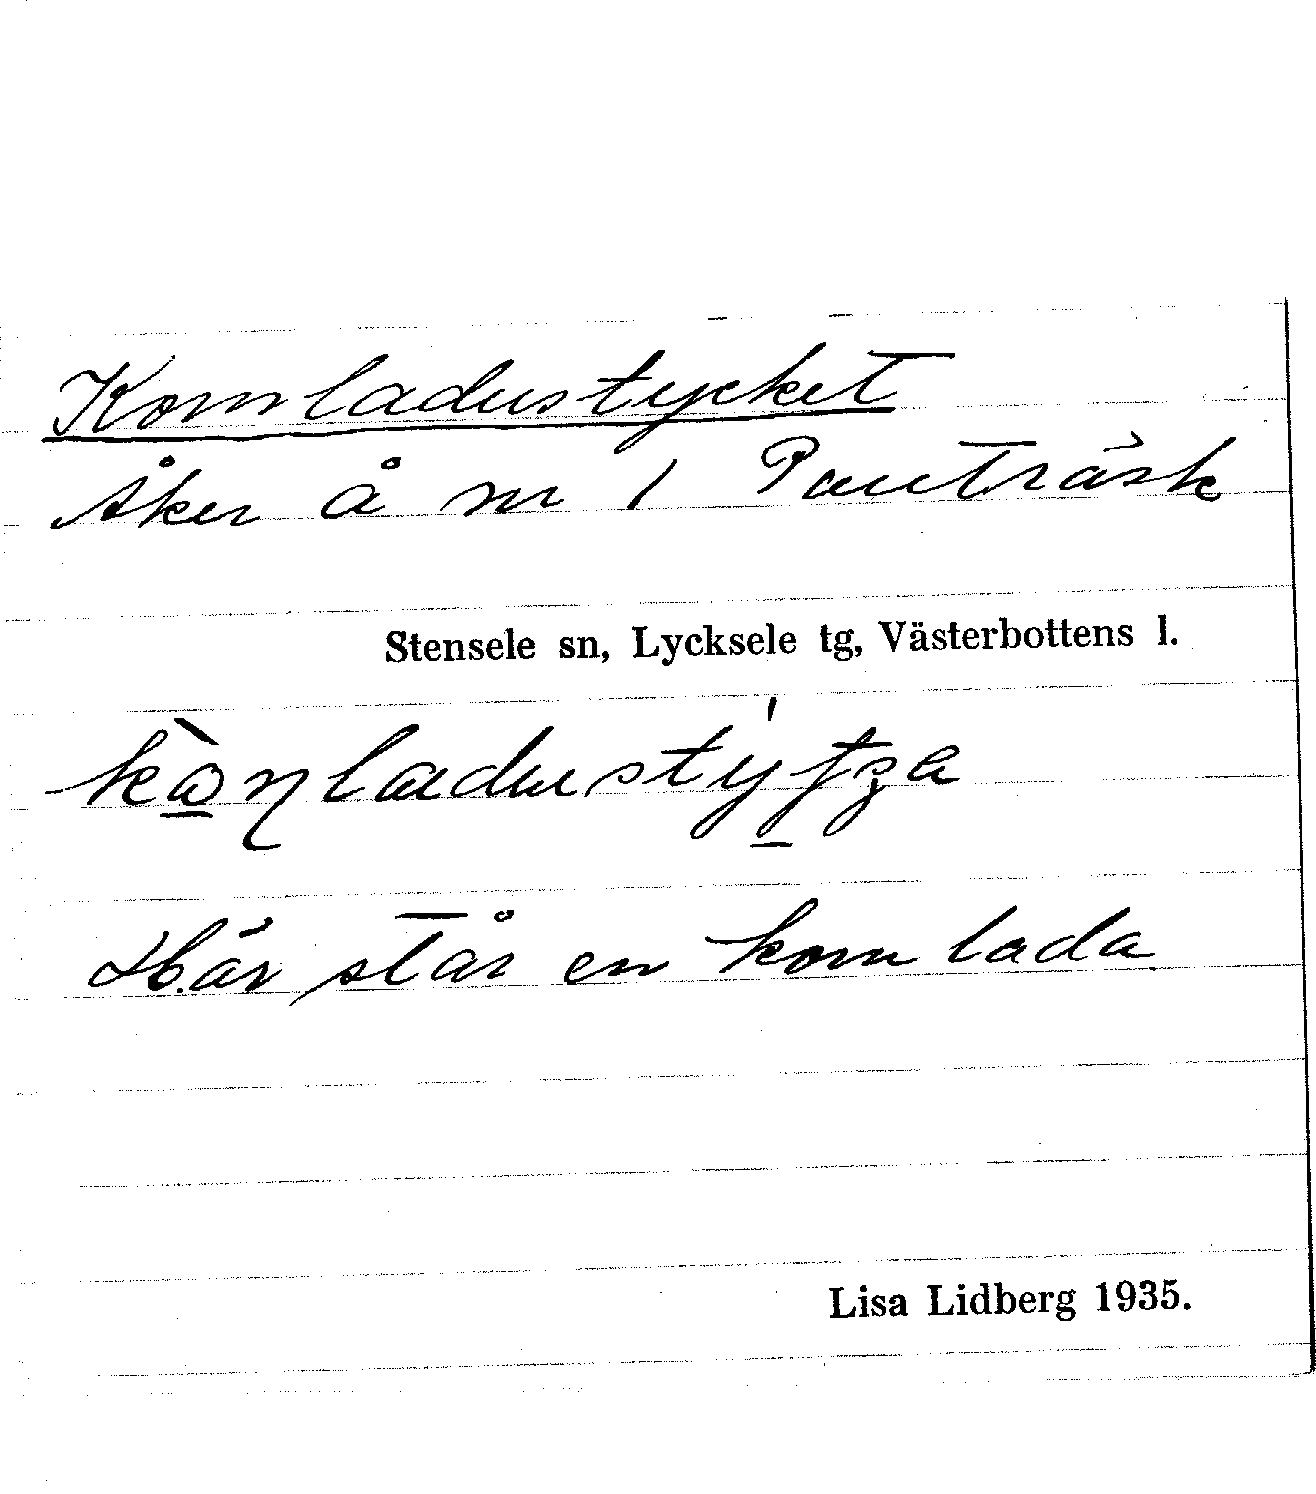 Kornladustycket
Åker å nr 1 Pauträsk
Stensele sn, Lycksele tg, Västerbottens l.
Här står en kornlada
Lisa Lidberg 1935.